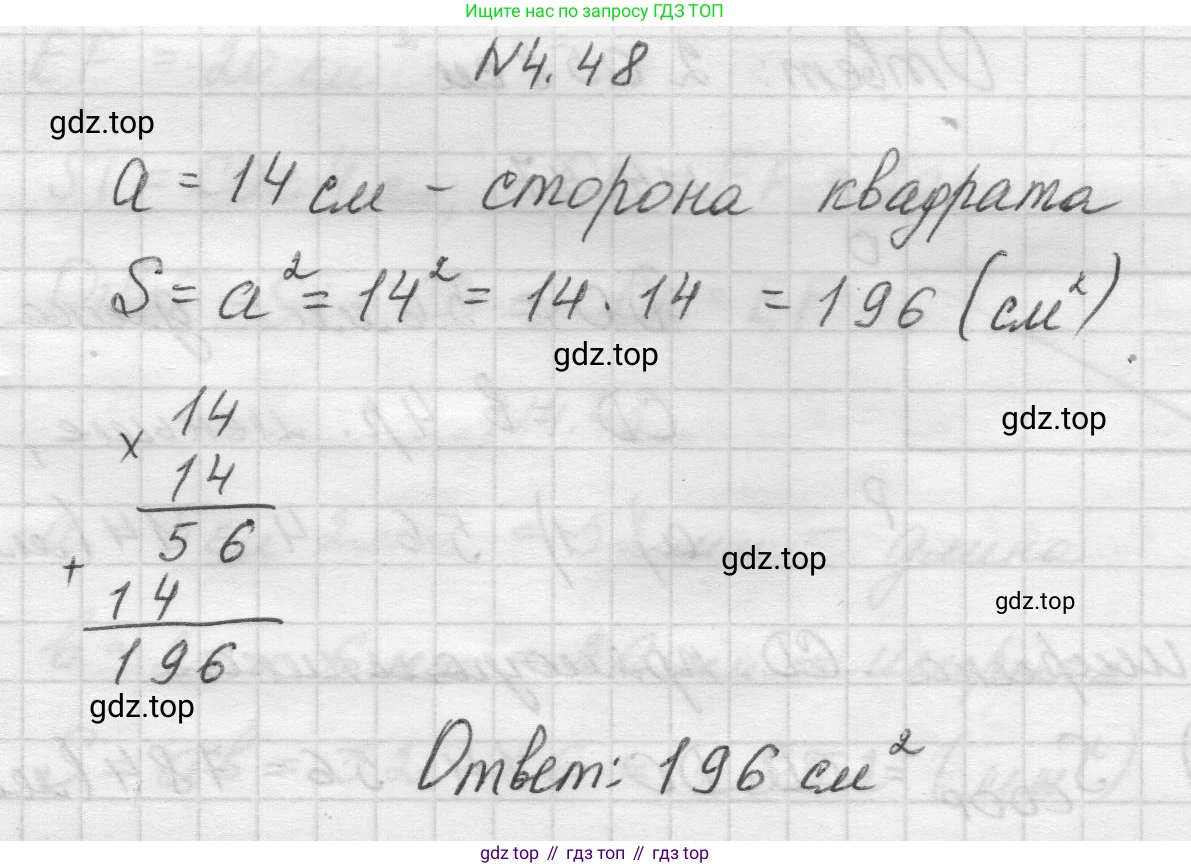 Ищите нас по запросу ГДЗ ТОП
N4.48
gdz.top
a = 14 см - сторона квадрата
S = a² = 14² = 14 · 14 = 196 (см²)
gdz.top
gdz.top
14
×
14
56
+
14
196
gdz.top
gdz.top
gdz.top
Ответ: 196 см²
gdz top // гдз топ // гдз top